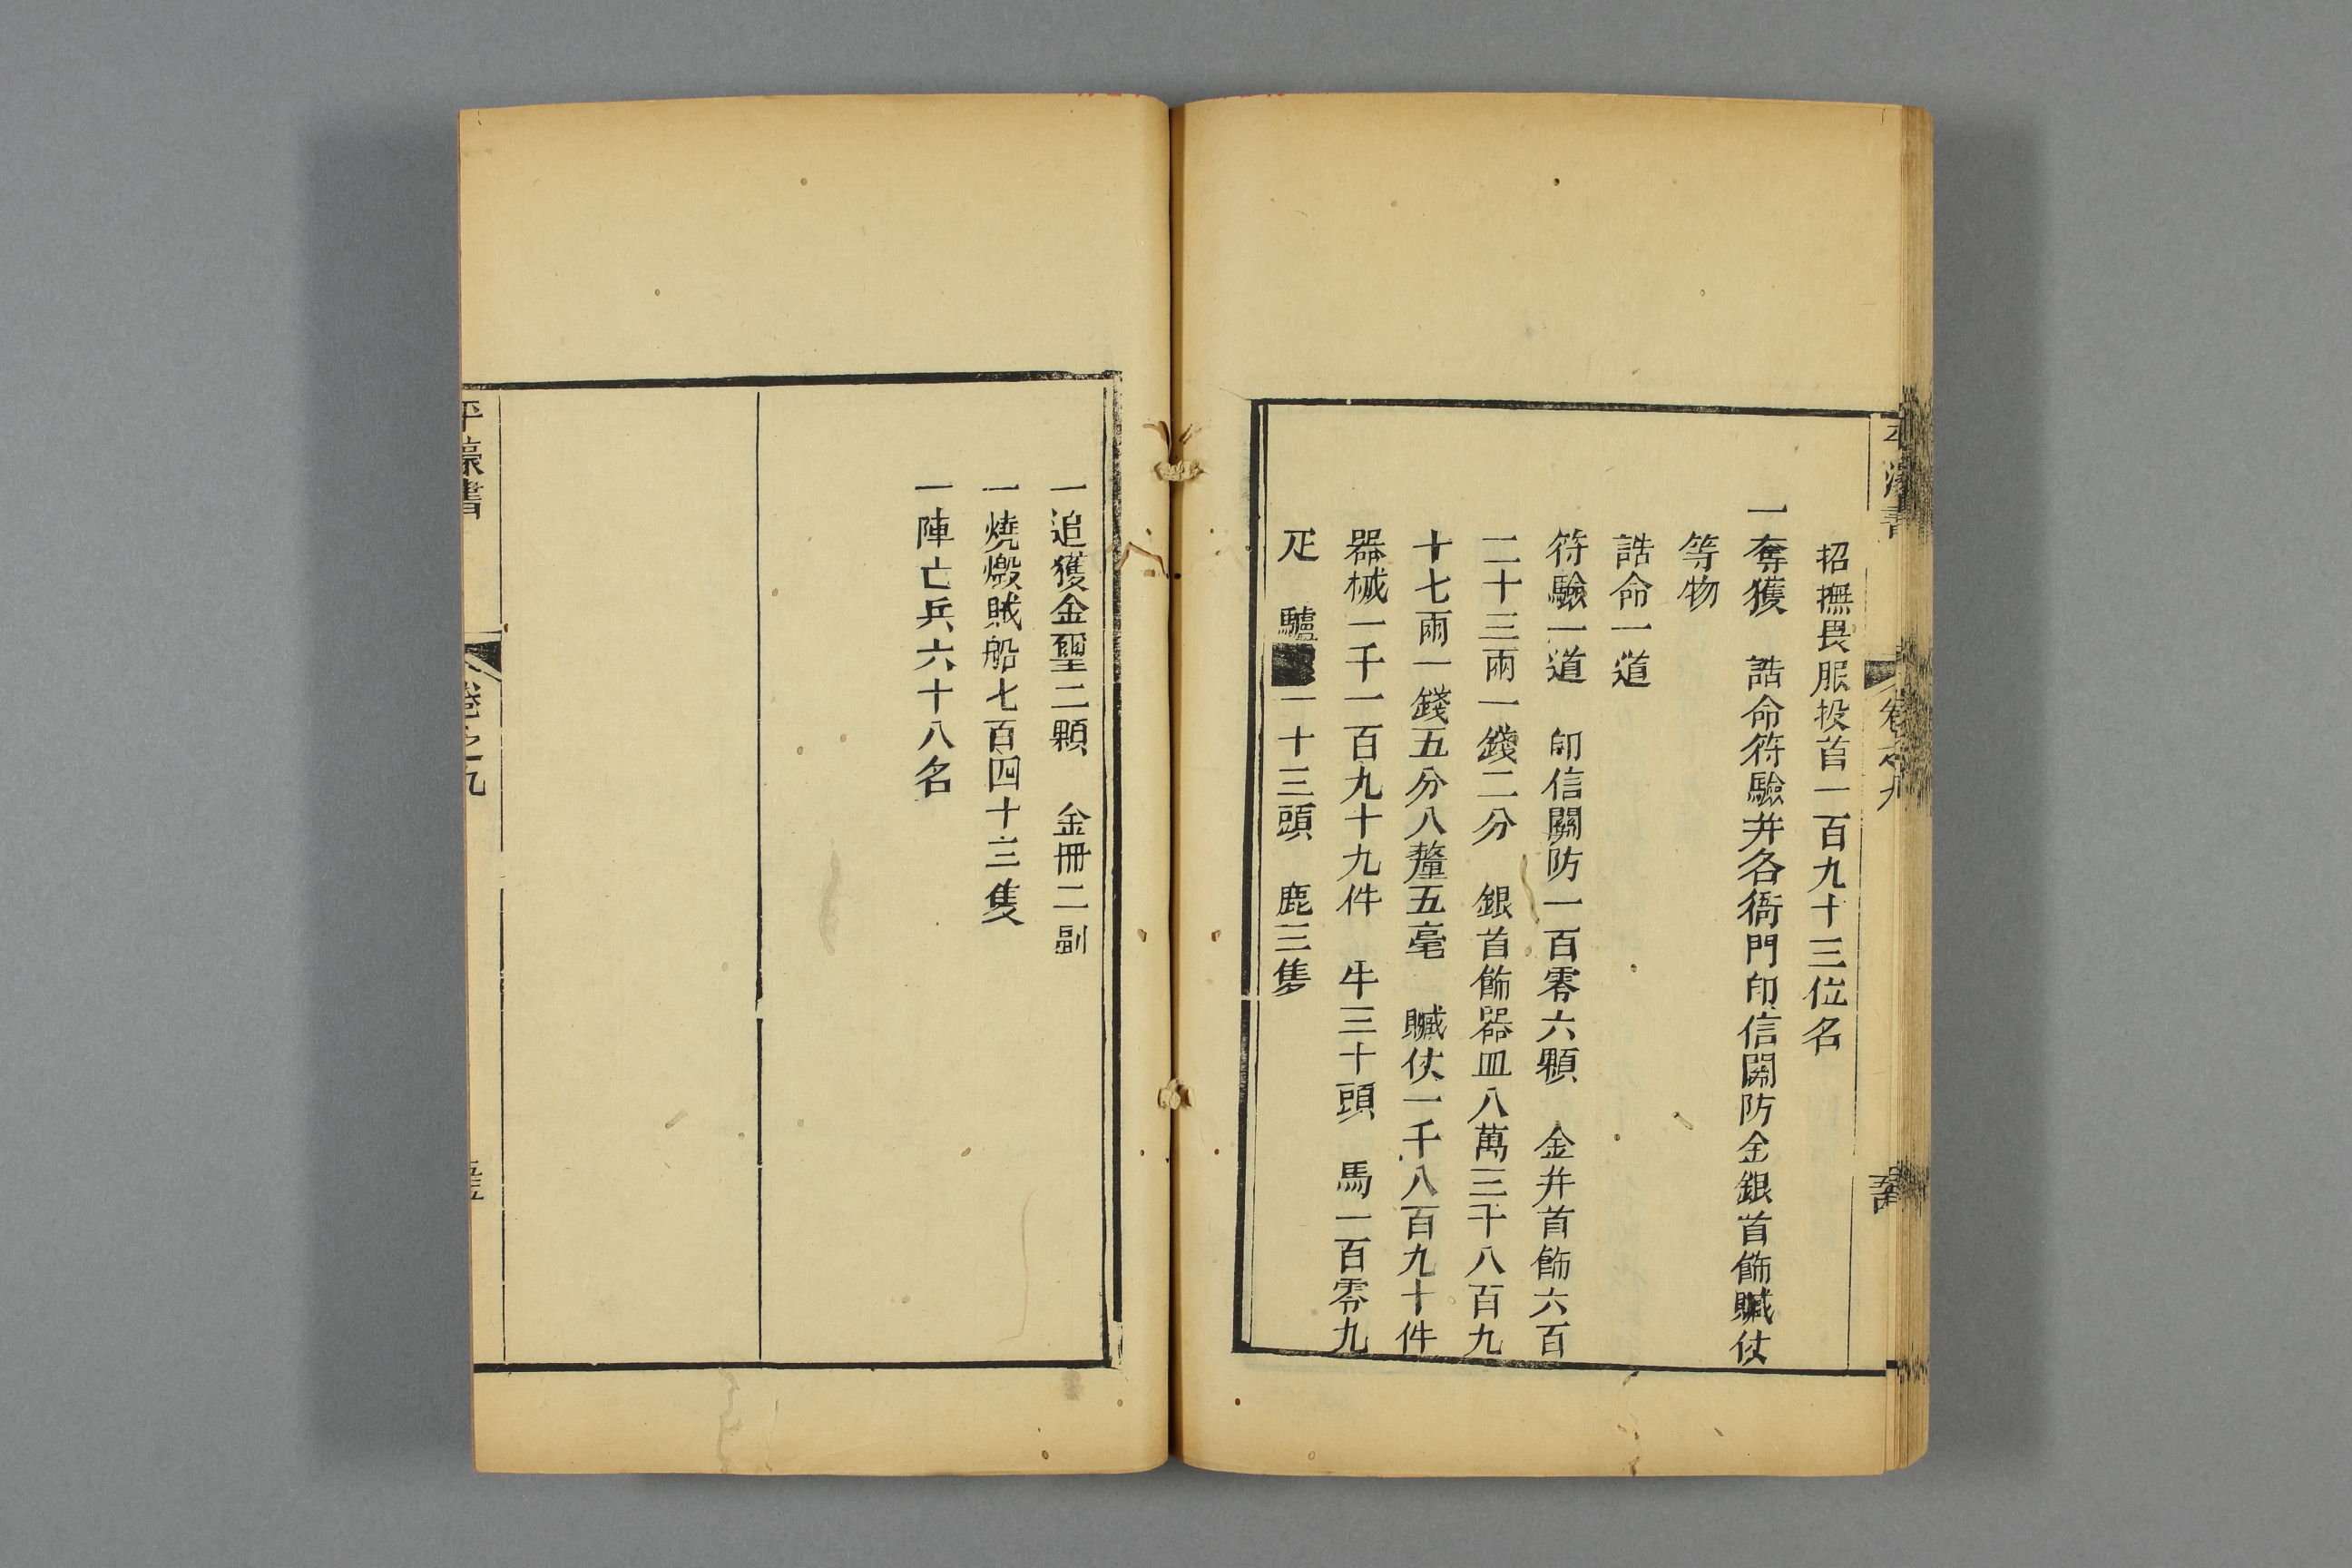 招撫畏服投首一百九十三位名
一奪獲　誥命符驗并各衙門印信關防金銀首飾贓仗
等物
誥命一道
符驗一道　印信關防一百零六顆　金并首飾六百
二十三兩一錢二分　銀首飾器皿八萬三千八百九
十七兩一錢五分八釐五毫　贓仗一千八百九十件
器械一千一百九十九件　牛三十頭　馬一百零九
疋　驢一十三頭　鹿三隻
一追獲金璽二顆　金冊二副
一燒燬賊船七百四十三隻
一陣亡兵六十八名
平濠書
卷之九